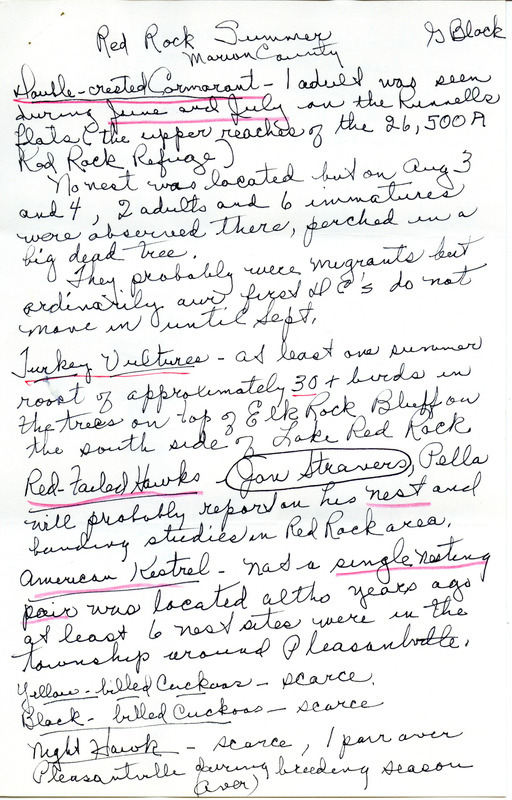 Red Rock Summer G Black
Marion County
Double-crested Cormorant - 1 adult was seen
during June and July on the Runnells
flats (the upper reaches of the 26,500 A
Red Rock Refuge)
No nest was located but on Aug 3
and 4, 2 adults and 6 immatures
were observed there, perched in a
big dead tree.
They probably were migrants but
ordinarily our first DC's do not
move in until Sept.
Turkey Vultures - at least one summer
roost of approximately 30+ birds in
the trees on top of Elk Rock Bluff on
the south side of Lake Red Rock
Red-tailed Hawks - Jon Stravers, Pella
will probably report on his nest and
banding studies in Red Rock area.
American Kestrel - not a single nesting
pair was located altho years ago
at least 6 nest sites were in the
township around Pleasantville.
Yellow-billed Cuckoos - scarce.
Black-billed Cuckoos - scarce
Night Hawk - scarce, 1 pair over
Pleasantville during breeding season
(over)